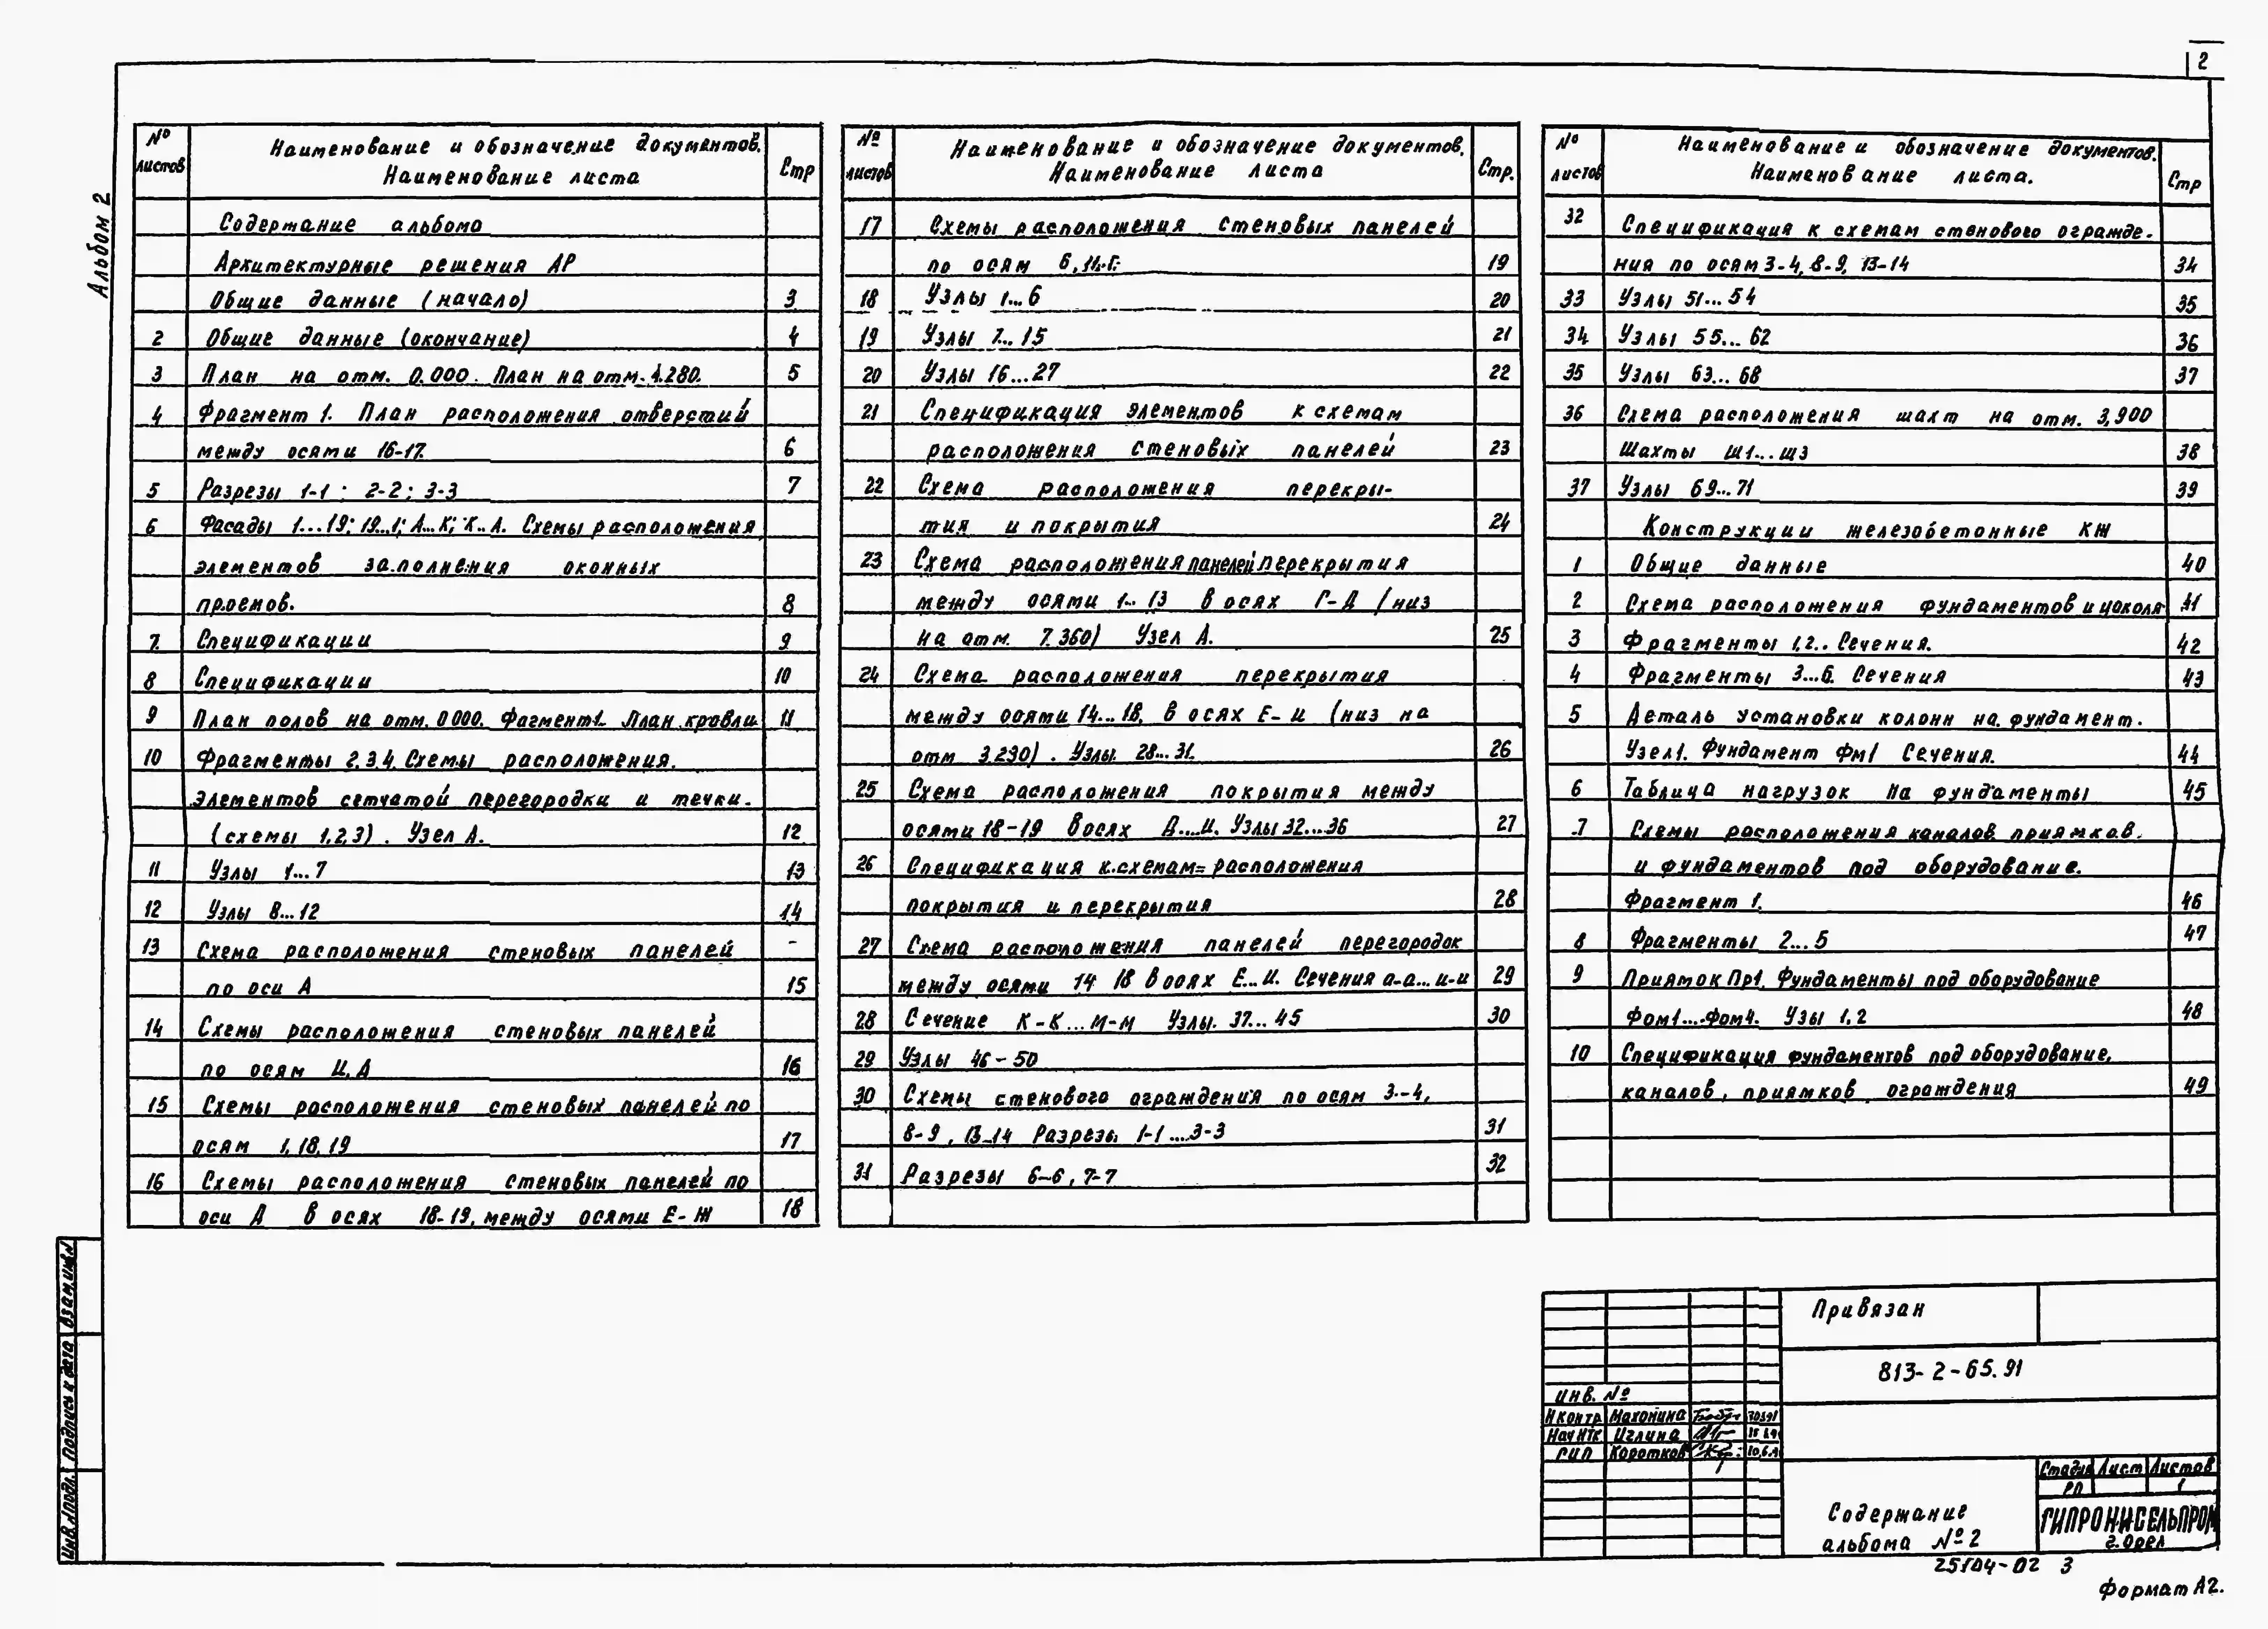 2
Альбом 2
№ листов Наименование и обозначение документов. Наименование листа Стр
Содержание альбома
Архитектурные решения АР
Общие данные (начало) 3
2 Общие данные (окончание) 4
3 План на отм. 0.000. План на отм. 4.280. 5
4 Фрагмент 1. План расположения отверстий
между осями 16-17. 6
5 Разрезы 1-1; 2-2; 3-3 7
6 Фасады 1...19; 19...1; А...К; К...А. Схемы расположения
элементов заполнения оконных
проемов. 8
7. Спецификации 9
8 Спецификации 10
9 План полов на отм. 0.000. Фагмент1. План кровли 11
10 Фрагменты 2.3.4. Схемы расположения.
элементов сетчатой перегородки и течки.
(схемы 1,2,3). Узел А. 12
11 Узлы 1...7 13
12 Узлы 8...12 14
13 Схема расположения стеновых панелей -
по оси А 15
14 Схемы расположения стеновых панелей
по осям И, Д 16
15 Схемы расположения стеновых панелей по
осям 1, 18, 19 17
16 Схемы расположения стеновых панелей по
оси Д в осях 18-19, между осями Е-Ж 18
№ листов Наименование и обозначение документов. Наименование листа Стр.
17 Схемы расположения стеновых панелей
по осям 19
18 Узлы 1...6 20
19 Узлы 7...15 21
20 Узлы 16...27 22
21 Спецификация элементов к схемам
расположения стеновых панелей 23
22 Схема расположения перекры-
тия и покрытия 24
23 Схема расположения панелей перекрытия
между осями 1...13 в осях Г-Д (низ
на отм. 7.360) Узел А. 25
24 Схема расположения перекрытия
между осями 14...18. в осях Е-И (низ на
отм 3.290). Узлы. 28...31. 26
25 Схема расположения покрытия между
осями 18-19 в осях Д...И. Узлы 32...36 27
26 Спецификация к схемам расположения
покрытия и перекрытия 28
27 Схема расположения панелей перегородок
между осями 14 18 в осях Е...И. Сечения а-а...и-и 29
28 Сечение К-К...М-М Узлы. 37...45 30
29 Узлы 46-50
30 Схемы стенового ограждения по осям 3-4,
8-9, 13-14 Разрезы 1-1...3-3 31
31 Разрезы 6-6, 7-7 32
№ листов Наименование и обозначение документов. Наименование листа. Стр
32 Спецификация к схемам стенового огражде-
ния по осям 3-4, 8-9, 13-14 34
33 Узлы 51...54 35
34 Узлы 55...62 36
35 Узлы 63...68 37
36 Схема расположения шахт на отм. 3,900
Шахты Ш1...Ш3 38
37 Узлы 69...71 39
Конструкции железобетонные КЖ
1 Общие данные 40
2 Схема расположения фундаментов и цоколя 41
3 Фрагменты 1,2.. Сечения. 42
4 Фрагменты 3...6. Сечения 43
5 Деталь установки колонн на. фундамент.
Узел1. Фундамент Фм1 Сечения. 44
6 Таблица нагрузок на фундаменты 45
7 Схемы расположения каналов приямков.
и фундаментов под оборудование.
Фрагмент 1. 46
8 Фрагменты 2...5 47
9 Приямок Пр1. Фундаменты под оборудование
Фом1....Фом4. Узы 1,2 48
10 Спецификация фундаментов под оборудование,
каналов, приямков ограждения 49
Взам. инв.N
Подпись и дата
Инв.Nподл.
Привязан
813-2-65.91
инв. №
Н контр Махонина
Нач НТК Иглина
ГИП Коротков
Стадия Лист Листов
РП 1
Содержание
альбома №2
ГИПРОНИСЕЛЬПРОМ
г. Орел
25104-02 3
Формат А2.